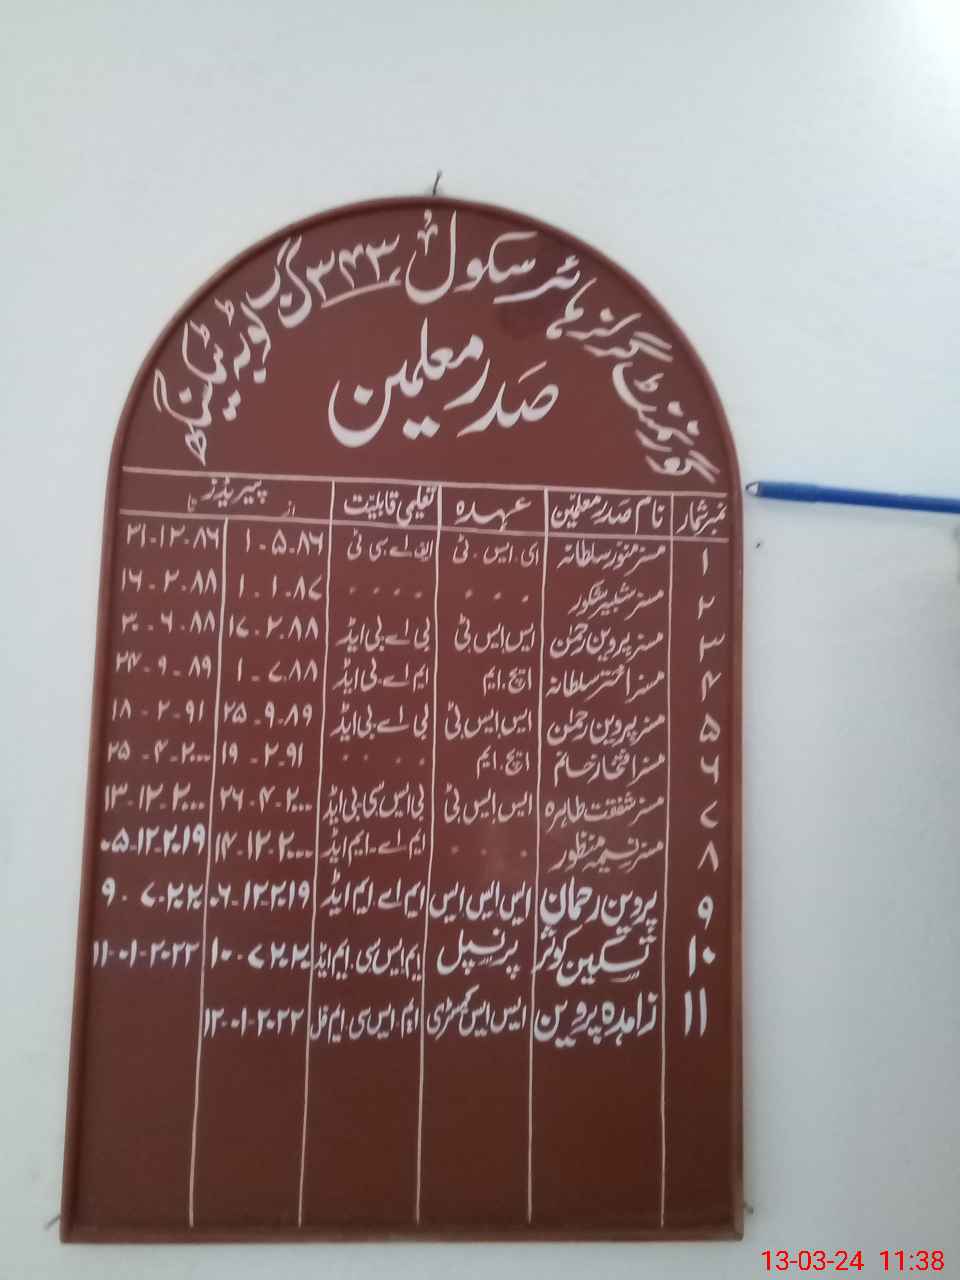 گورنمنٹ گرلز ہائر سکول ۳۴۳ گ ب ٹوبہ ٹیک سنگھ
صدر معلمین
نمبر شمار نام صدر معلمین عہدہ تعلیمی قابلیت پیریڈز
از تا
۱ مسز منور سلطانہ ای.ایس.ٹی ایف اے سی ٹی ۱-۵-۸۶ ۳۱-۱۲-۸۶
۲ مسز شبیر شکور . . . . . . . ۱-۱-۸۷ ۱۶-۲-۸۸
۳ مسز پروین رحمٰن ایس ایس ٹی بی اے بی ایڈ ۱۷-۲-۸۸ ۳۰-۶-۸۸
۴ مسز اختر سلطانہ ایچ.ایم ایم اے بی ایڈ ۱-۷-۸۸ ۲۴-۹-۸۹
۵ مسز پروین رحمٰن ایس ایس ٹی بی اے بی ایڈ ۲۵-۹-۸۹ ۱۸-۲-۹۱
۶ مسز افتخار خانم ایچ.ایم . . . . ۱۹-۲-۹۱ ۲۵-۴-۲۰۰۰
۷ مسز شفقت طاہرہ ایس ایس ٹی بی ایس سی بی ایڈ ۲۶-۴-۲۰۰۰ ۱۳-۱۲-۲۰۰۰
۸ مسز نسیمہ منظور . . . ایم اے-ایم ایڈ ۱۴-۱۲-۲۰۰۰ ۰۵-۱۲-۲۰۱۹
۹ پروین رحمان ایس ایس ایس ایم اے ایم ایڈ ۰۶-۱۲-۲۰۱۹ ۹-۷-۲۰۲۰
۱۰ تسکین کوثر پرنسپل ایم ایس سی.ایم ایڈ ۱۰-۷-۲۰۲۰ ۱۱-۰۱-۲۰۲۲
۱۱ زاہدہ پروین ایس ایس کیمسٹری ایم.ایس سی ایم فل ۱۲-۰۱-۲۰۲۲
13-03-24 11:38